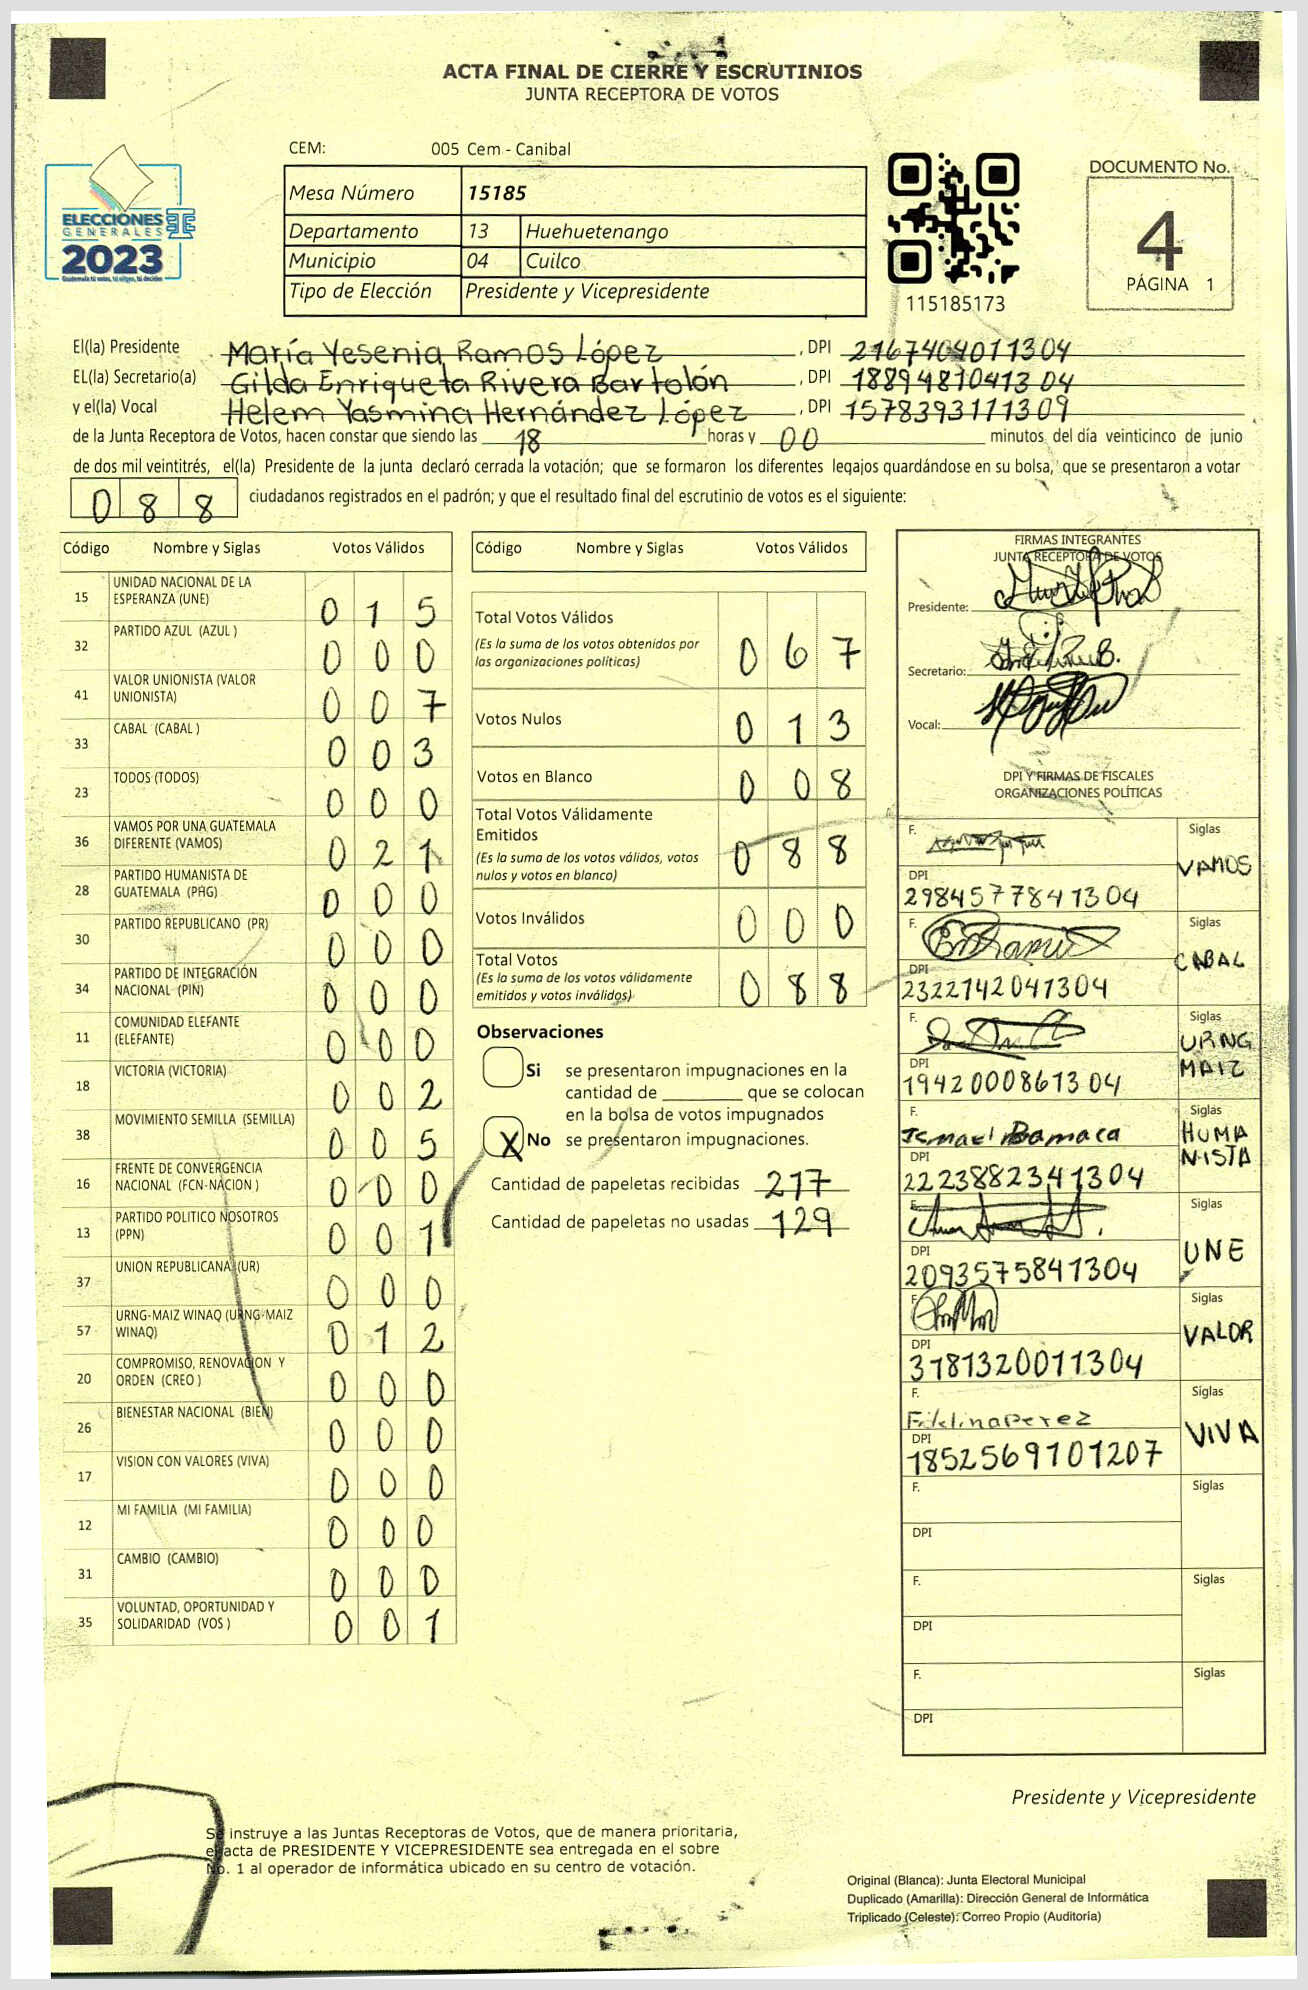 ACTA FINAL DE CIERRE Y ESCRUTINIOS
JUNTA RECEPTORA DE VOTOS
CEM: 005 Cem - Canibal
ELECCIONES
GENERALES
2023
Mesa Número 15185
Departamento 13 Huehuetenango
Municipio 04 Cuilco
Tipo de Elección Presidente y Vicepresidente
115185173
DOCUMENTO No.
4
PÁGINA 1
El(la) Presidente María Yesenia Ramos López, DPI 2167404011304
EL(la) Secretario(a) Gilda Enriqueta Rivera Bartolón, DPI 1889481041304
y el(la) Vocal Helem Yasmina Hernández López, DPI 1578393111309
de la Junta Receptora de Votos, hacen constar que siendo las 18 horas y 00 minutos del día veinticinco de junio
de dos mil veintitrés, el(la) Presidente de la junta declaró cerrada la votación; que se formaron los diferentes legajos guardándose en su bolsa, que se presentaron a votar
088 ciudadanos registrados en el padrón; y que el resultado final del escrutinio de votos es el siguiente:
Código Nombre y Siglas Votos Válidos
15 UNIDAD NACIONAL DE LA ESPERANZA (UNE) 015
32 PARTIDO AZUL (AZUL ) 000
41 VALOR UNIONISTA (VALOR UNIONISTA) 007
33 CABAL (CABAL ) 003
23 TODOS (TODOS) 000
36 VAMOS POR UNA GUATEMALA DIFERENTE (VAMOS) 021
28 PARTIDO HUMANISTA DE GUATEMALA (PHG) 000
30 PARTIDO REPUBLICANO (PR) 000
34 PARTIDO DE INTEGRACIÓN NACIONAL (PIN) 000
11 COMUNIDAD ELEFANTE (ELEFANTE) 000
18 VICTORIA (VICTORIA) 002
38 MOVIMIENTO SEMILLA (SEMILLA) 005
16 FRENTE DE CONVERGENCIA NACIONAL (FCN-NACION ) 000
13 PARTIDO POLITICO NOSOTROS (PPN) 001
37 UNION REPUBLICANA (UR) 000
57 URNG-MAIZ WINAQ (URNG-MAIZ WINAQ) 012
20 COMPROMISO, RENOVACION Y ORDEN (CREO ) 000
26 BIENESTAR NACIONAL (BIEN) 000
17 VISION CON VALORES (VIVA) 000
12 MI FAMILIA (MI FAMILIA) 000
31 CAMBIO (CAMBIO) 000
35 VOLUNTAD, OPORTUNIDAD Y SOLIDARIDAD (VOS ) 001
Código Nombre y Siglas Votos Válidos
Total Votos Válidos 067
(Es la suma de los votos obtenidos por
las organizaciones políticas)
Votos Nulos 013
Votos en Blanco 008
Total Votos Válidamente
Emitidos 088
(Es la suma de los votos válidos, votos
nulos y votos en blanco)
Votos Inválidos 000
Total Votos 088
(Es la suma de los votos válidamente
emitidos y votos inválidos)
Observaciones
Si se presentaron impugnaciones en la
cantidad de ________ que se colocan
en la bolsa de votos impugnados
X No se presentaron impugnaciones.
Cantidad de papeletas recibidas 217
Cantidad de papeletas no usadas 129
FIRMAS INTEGRANTES
JUNTA RECEPTORA DE VOTOS
Presidente:
Secretario:
Vocal:
DPI Y FIRMAS DE FISCALES
ORGANIZACIONES POLÍTICAS
F. Siglas VAMOS
DPI 2984577841304
F. Siglas CABAL
DPI 2322142041304
F. Siglas URNG MAIZ
DPI 1942000861304
F. Ismael Bamaca Siglas HUMANISTA
DPI 2223882341304
F. Siglas UNE
DPI 2093575841304
F. Siglas VALOR
DPI 3181320011304
F. Fidelina Perez Siglas VIVA
DPI 1852569101207
F. Siglas
DPI
F. Siglas
DPI
F. Siglas
DPI
Presidente y Vicepresidente
Se instruye a las Juntas Receptoras de Votos, que de manera prioritaria,
el acta de PRESIDENTE Y VICEPRESIDENTE sea entregada en el sobre
No. 1 al operador de informática ubicado en su centro de votación.
Original (Blanca): Junta Electoral Municipal
Duplicado (Amarilla): Dirección General de Informática
Triplicado (Celeste): Correo Propio (Auditoría)